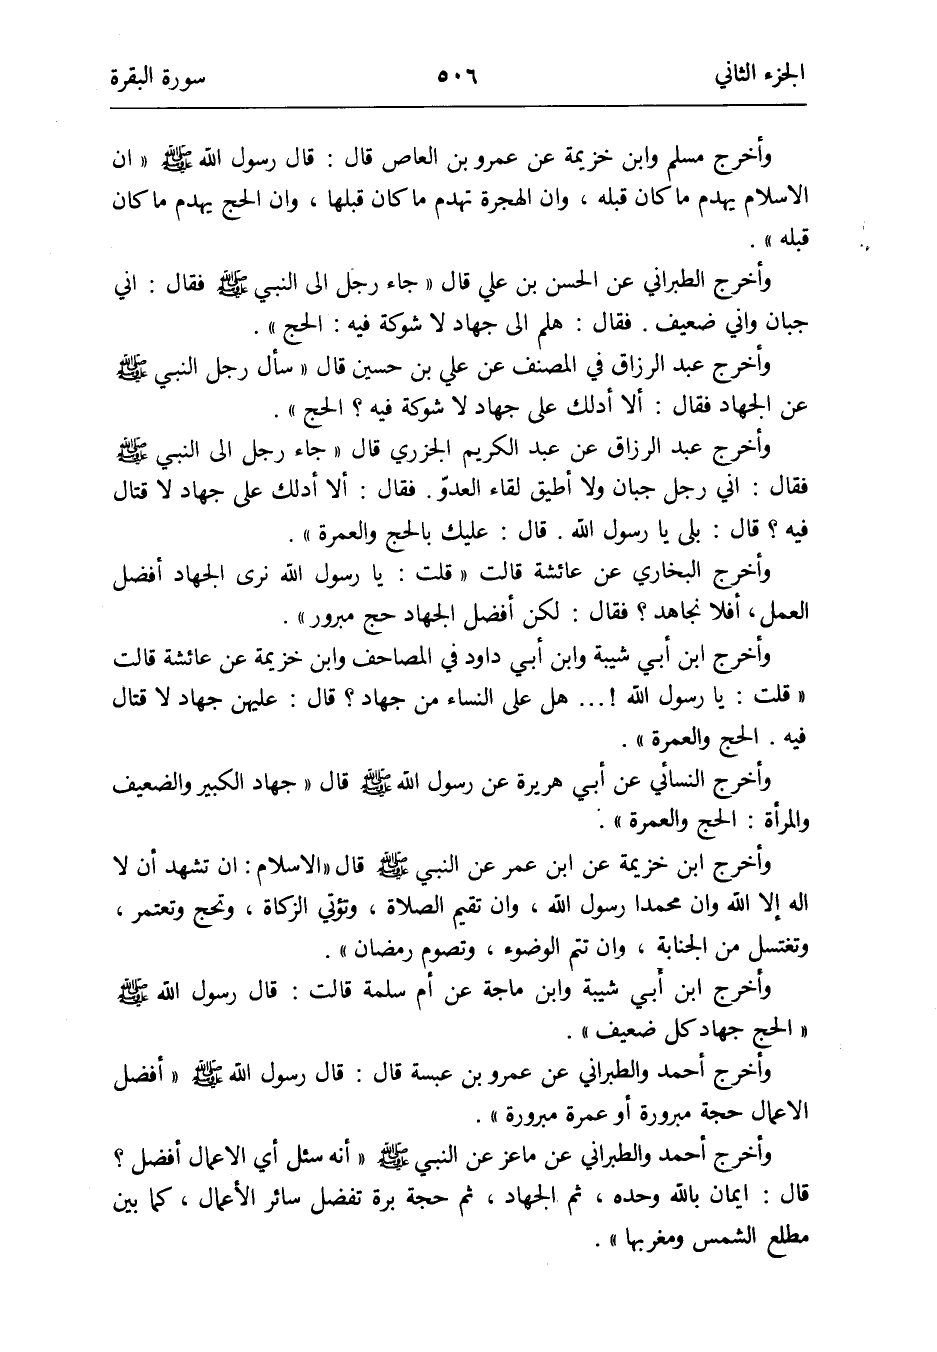 الجزء الثاني ٥٠٦ سورة البقرة
وأخرج مسلم وابن خزيمة عن عمرو بن العاص قال : قال رسول الله ﷺ « ان
الاسلام يهدم ما كان قبله ، وان الهجرة تهدم ما كان قبلها ، وان الحج يهدم ما كان
قبله » .
وأخرج الطبراني عن الحسن بن علي قال « جاء رجل الى النبي ﷺ فقال : اني
جبان واني ضعيف . فقال : هلم الى جهاد لا شوكة فيه : الحج » .
وأخرج عبد الرزاق في المصنف عن علي بن حسين قال « سأل رجل النبي ﷺ
عن الجهاد فقال : ألا أدلك على جهاد لا شوكة فيه ؟ الحج » .
وأخرج عبد الرزاق عن عبد الكريم الجزري قال « جاء رجل الى النبي ﷺ
فقال : اني رجل جبان ولا أطيق لقاء العدوّ . فقال : ألا أدلك على جهاد لا قتال
فيه ؟ قال : بلى يا رسول الله . قال : عليك بالحج والعمرة » .
وأخرج البخاري عن عائشة قالت « قلت : يا رسول الله نرى الجهاد أفضل
العمل ، أفلا نجاهد ؟ فقال : لكن أفضل الجهاد حج مبرور » .
وأخرج ابن أبي شيبة وابن أبي داود في المصاحف وابن خزيمة عن عائشة قالت
« قلت : يا رسول الله !... هل على النساء من جهاد ؟ قال : عليهن جهاد لا قتال
فيه . الحج والعمرة » .
وأخرج النسائي عن أبي هريرة عن رسول الله ﷺ قال « جهاد الكبير والضعيف
والمرأة : الحج والعمرة » .
وأخرج ابن خزيمة عن ابن عمر عن النبي ﷺ قال « الاسلام : ان تشهد أن لا
اله إلا الله وان محمدا رسول الله ، وان تقيم الصلاة ، وتؤتي الزكاة ، وتحج وتعتمر ،
وتغتسل من الجنابة ، وان تتم الوضوء ، وتصوم رمضان » .
وأخرج ابن أبي شيبة وابن ماجة عن أم سلمة قالت : قال رسول الله ﷺ
« الحج جهاد كل ضعيف » .
وأخرج أحمد والطبراني عن عمرو بن عبسة قال : قال رسول الله ﷺ « أفضل
الاعمال حجة مبرورة أو عمرة مبرورة » .
وأخرج أحمد والطبراني عن ماعز عن النبي ﷺ « أنه سئل أي الاعمال أفضل ؟
قال : ايمان بالله وحده ، ثم الجهاد ، ثم حجة برة تفضل سائر الأعمال ، كما بين
مطلع الشمس ومغربها » .